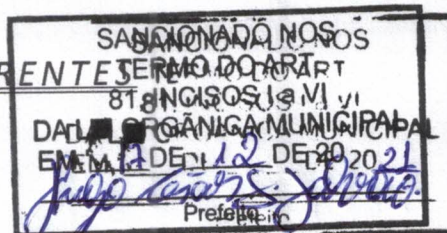 SANCIONADO NOS
RENTES TERMO DO ART
81, INCISOS I a VI
DA LEI ORGÂNICA MUNICIPAL
EM 17 DE 12 DE 2021
Prefeito